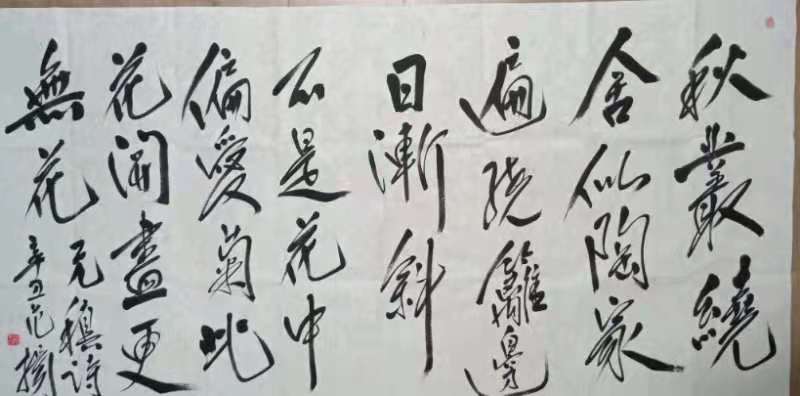 秋叢繞
舍似陶家
遍绕籬邊
日漸斜
不是花中
偏愛菊此
花開盡更
無花
元稹詩
辛丑